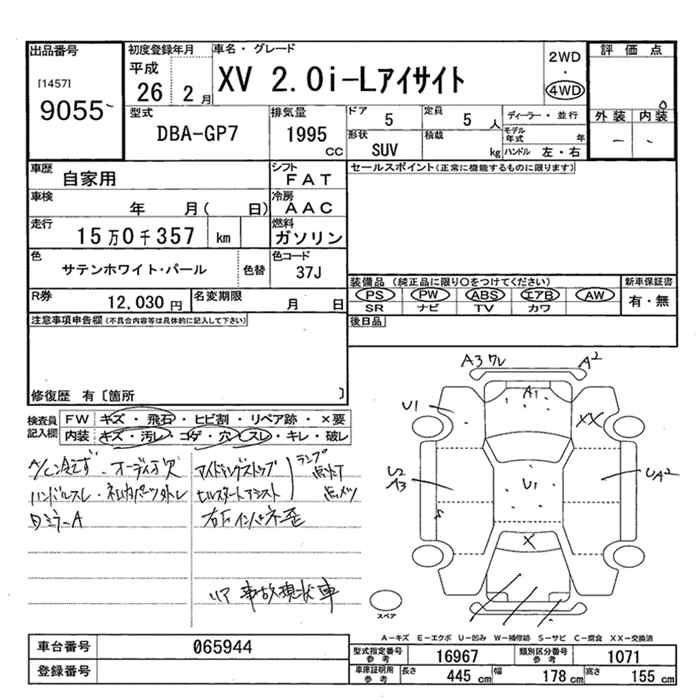 出品番号
[1457]
9055
初度登録年月
平成
26 2月
車名・グレード
XV 2.0i-Lアイサイト
2WD
・
4WD
評価点
0
外装 内装
- -
型式
DBA-GP7
排気量
1995 CC
ドア 5
定員 5人
形状 SUV
積載 kg
ディーラー・並行
モデル年式 年
ハンドル 左・右
車歴 自家用
シフト FAT
セールスポイント(正常に機能するものに限ります)
車検 年 月( 日)
冷房 AAC
走行 15万0千357 km
燃料 ガソリン
色 サテンホワイト・パール
色替
色コード 37J
装備品 (純正品に限り○をつけてください)
新車保証書
PS PW ABS エアB AW
SR ナビ TV カワ
有・無
R券 12,030円
名変期限 月 日
後日品
注意事項申告欄(不具合内容等は具体的に記入して下さい)
修復歴 有〔箇所 〕
検査員記入欄
FW キズ・飛石・ヒビ割・リペア跡・×要
内装 キズ・汚レ・コゲ・穴・スレ・キレ・破レ
A/C冷えず・オーディオ欠
ハンドルスレ・
アイドリングストップ
セルスタートアシスト
ランプ点灯
リア 事故現状車
A3 ワレ
A2
A1
U1
XX
U2
A3
U1
UA2
S
X
U1
スペア
A-キズ E-エクボ U-凹み W-補修跡 S-サビ C-腐食 XX-交換済
車台番号 065944
型式指定番号 参考 16967
類別区分番号 参考 1071
登録番号
車庫証明用 参考 長さ 445 cm 幅 178 cm 高さ 155 cm